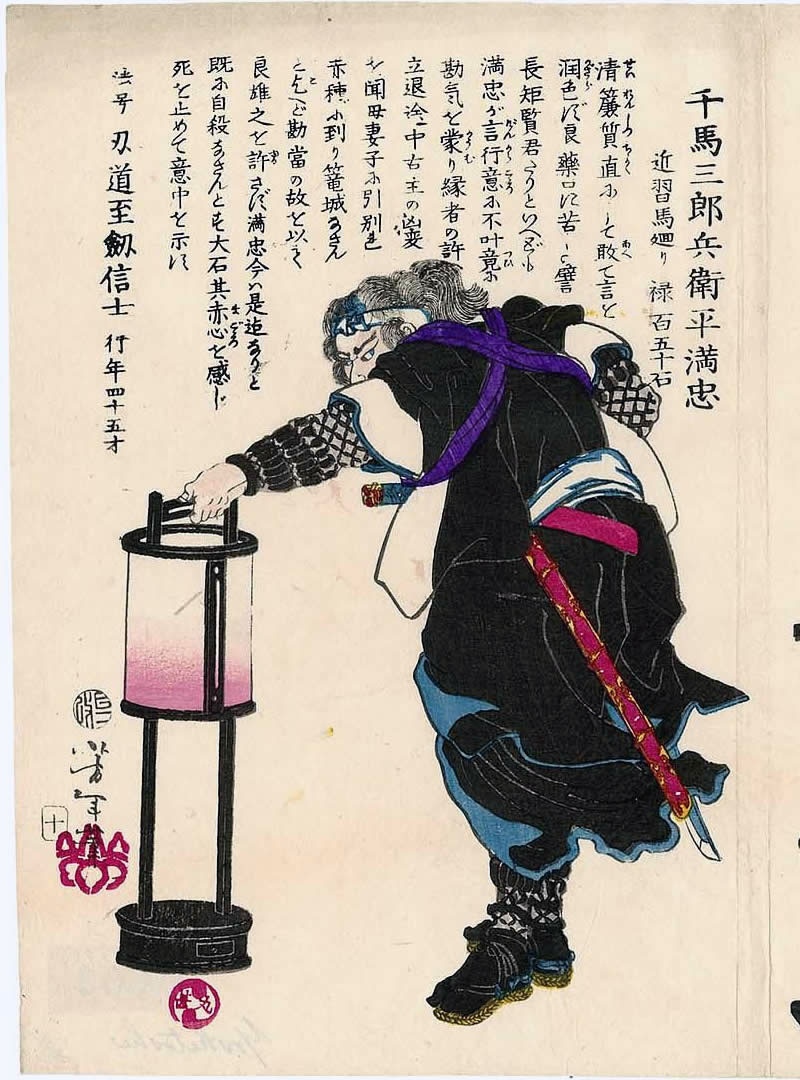 千馬三郎兵衛平満忠
近習馬廻り 禄 百五十石
清簾質直にして敢て言を
潤色ず良藥口に苦しと譬
長矩賢君たりといへども
満忠が言行意に不叶竟に
勘気を蒙り縁者の許
立退途中右主の凶変
を聞母妻子に引別れ
赤穂に到り篭城なさん
といへど勘當の故を以て
良雄之を許さず満忠今は是迄なりと
既に自殺なさんとす大石其赤心を感じ
死を止めて意中を示す
法号 刃道至劔信士 行年四十五才
芳年筆
十